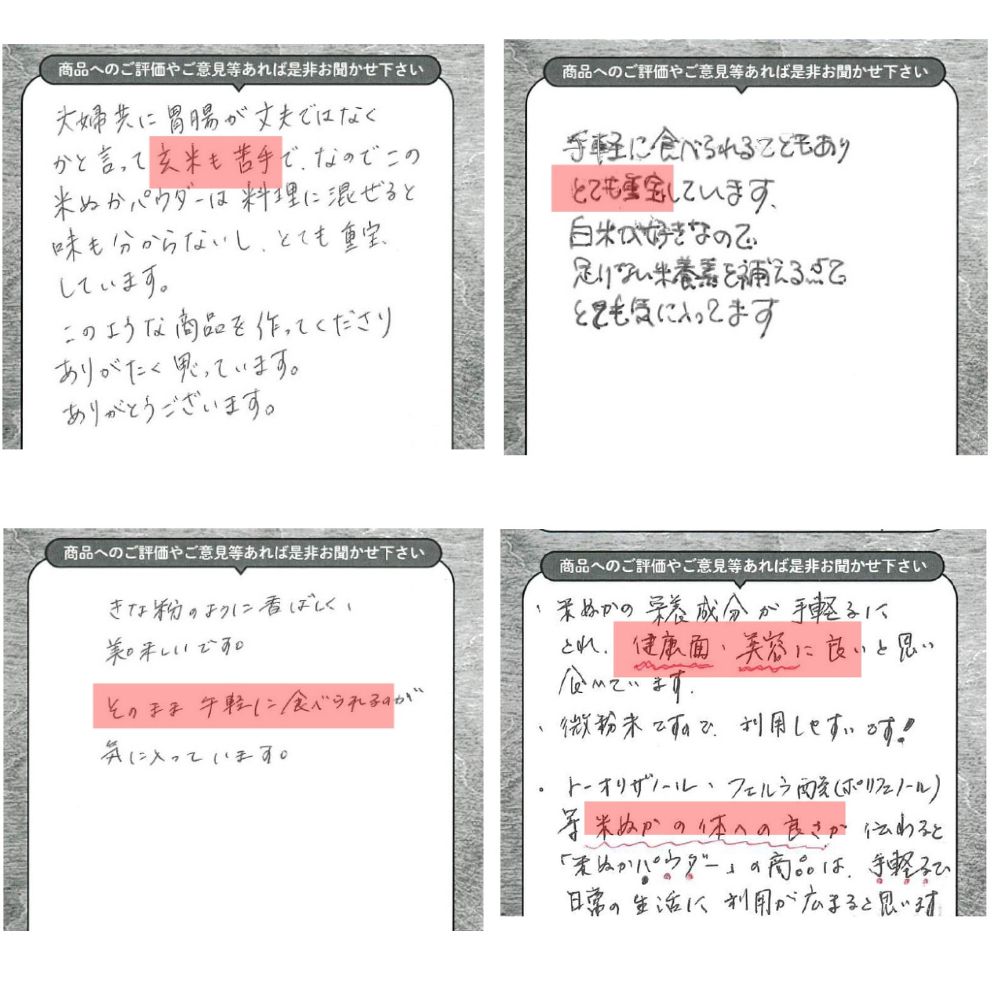 商品へのご評価やご意見等あれば是非お聞かせ下さい
夫婦共に胃腸が丈夫ではなく
かと言って玄米も苦手で、なのでこの
米ぬかパウダーは料理に混ぜると
味も分からないし、とても重宝
しています。
このような商品を作ってくださり
ありがたく思っています。
ありがとうございます。
商品へのご評価やご意見等あれば是非お聞かせ下さい
手軽に食べられることもあり
とても重宝しています、
白米が好きなので、
足りない栄養素を補える点で
とても気に入ってます
商品へのご評価やご意見等あれば是非お聞かせ下さい
きな粉のように香ばしく、
美味しいです。
そのまま手軽に食べられるのが
気に入っています。
商品へのご評価やご意見等あれば是非お聞かせ下さい
・米ぬかの栄養成分が手軽に
とれ、健康面・美容に良いと思い
食べています。
・微粉末ですので、利用しやすいです!
・トーオリザノール・フェルラ酸(ポリフェノール)
等米ぬかの体への良さが伝わると
「米ぬかパウダー」の商品は、手軽るで
日常の生活に利用が広まると思います